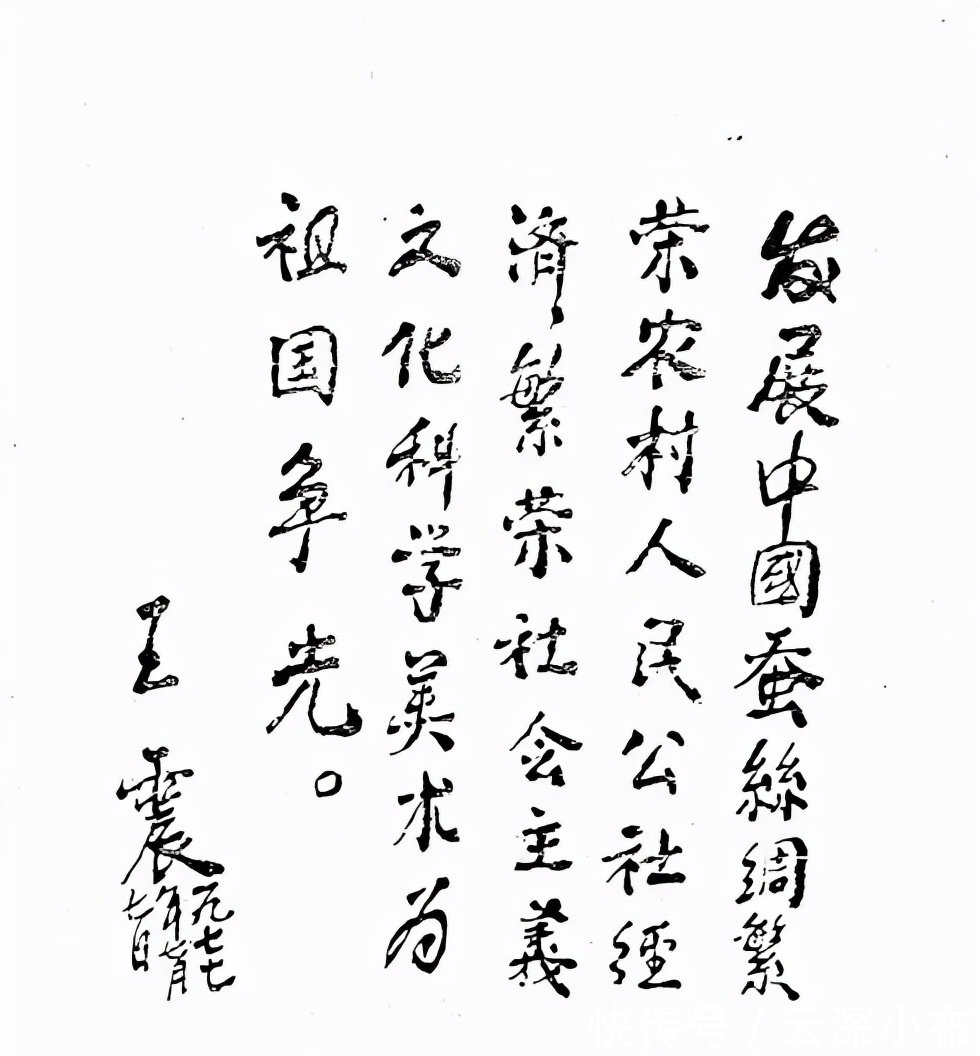 发展中國蚕絲绸繁
荣农村人民公社經
济,繁荣社会主義
文化科学美术为
祖国争光。
王震
一九七七
年七月
七日
快传号 / 云深小布